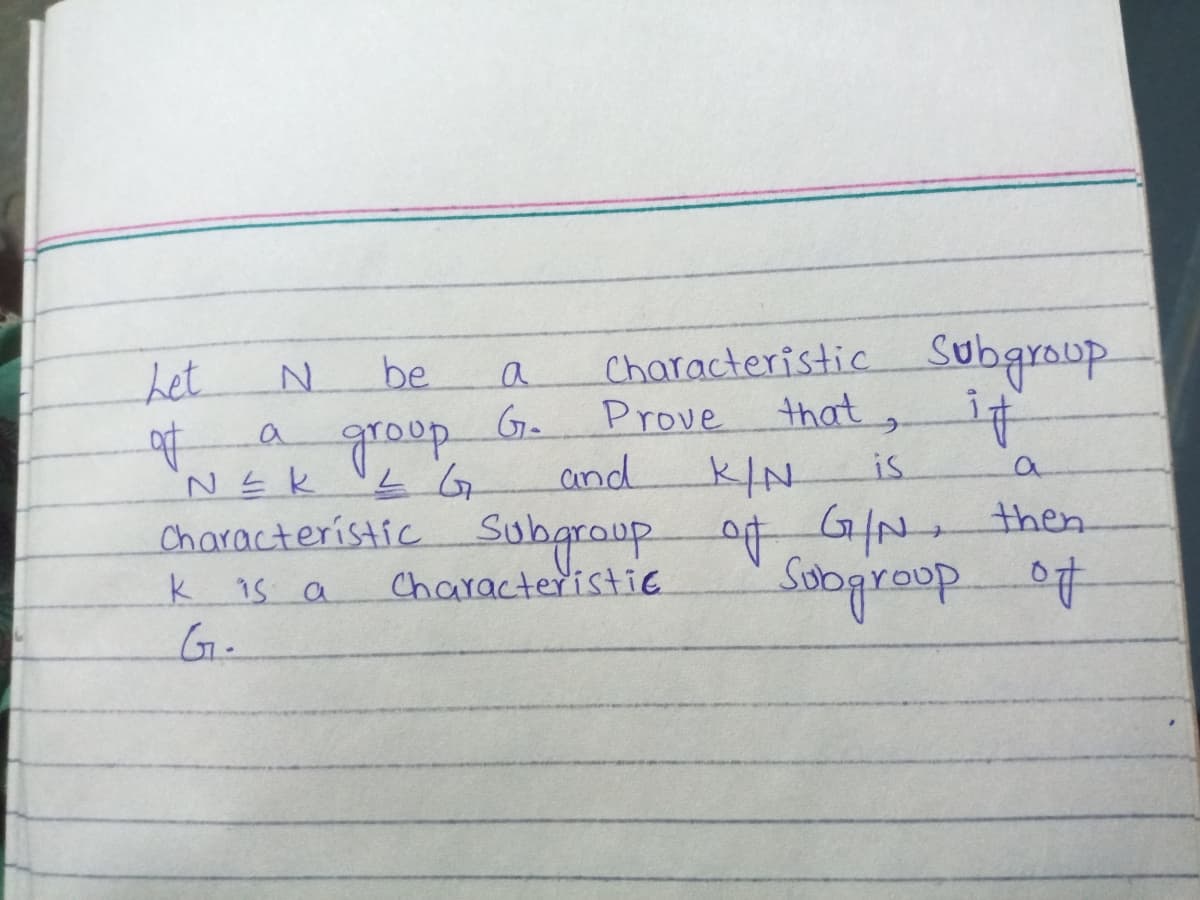 Let N be a Characteristic Subgroup
of a group G. Prove that, if
N ≤ K ≤ G and K/N is a
Characteristic Subgroup of G/N, then
K is a Characteristic Subgroup of
G.